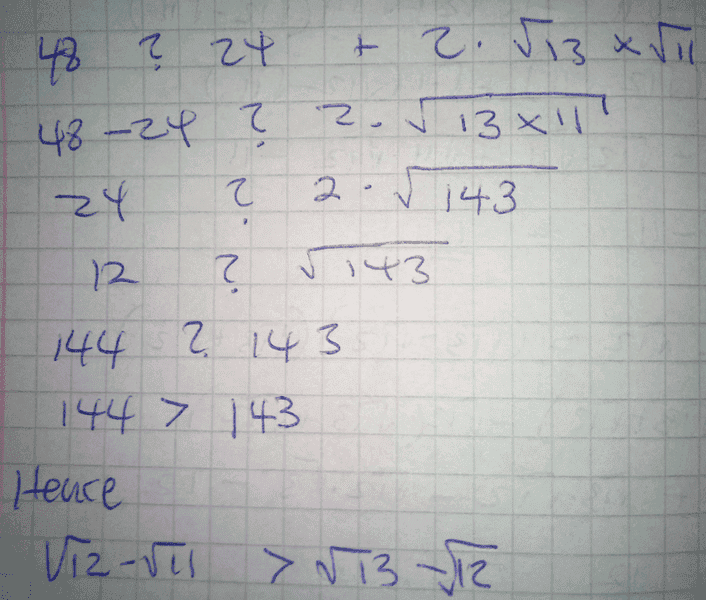 48 ? 24 + 2 · √13 × √11
48 - 24 ? 2 · √(13 × 11)
24 ? 2 · √143
12 ? √143
144 ? 143
144 > 143
Hence
√12 - √11 > √13 - √12